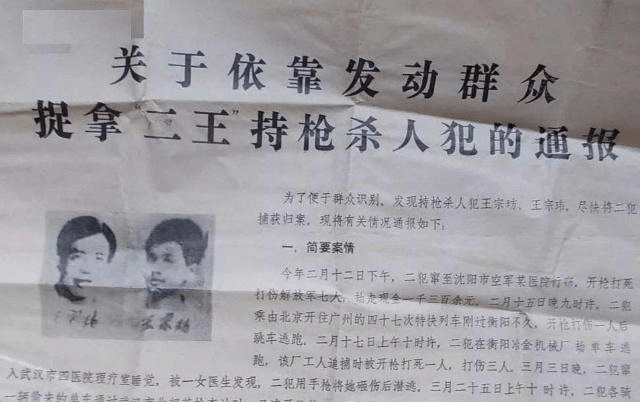 关于依靠发动群众
捉拿“二王”持枪杀人犯的通报
为了便于群众识别、发现持枪杀人犯王宗坊、王宗玮，尽快将二犯
捕获归案，现将有关情况通报如下：
一、简要案情
今年二月十二日下午，二犯窜至沈阳市空军某医院行窃，开枪打死
打伤解放军七人，抢走现金一千三百余元。二月十五日晚九时许，二犯
乘由北京开往广州的四十七次特快列车刚过衡阳不久，开枪打伤一人后
跳车逃跑。二月十七日上午十时许，二犯在衡阳冶金机械厂抢单车逃
跑，该厂工人追捕时被开枪打死一人，打伤三人。三月三日晚，二犯窜
入武汉市四医院理疗室睡觉，被一女医生发现，二犯用手枪将她砸伤后潜逃，三月二十五日上午十时许，二犯各骑
一辆偷来的单车通过武汉市